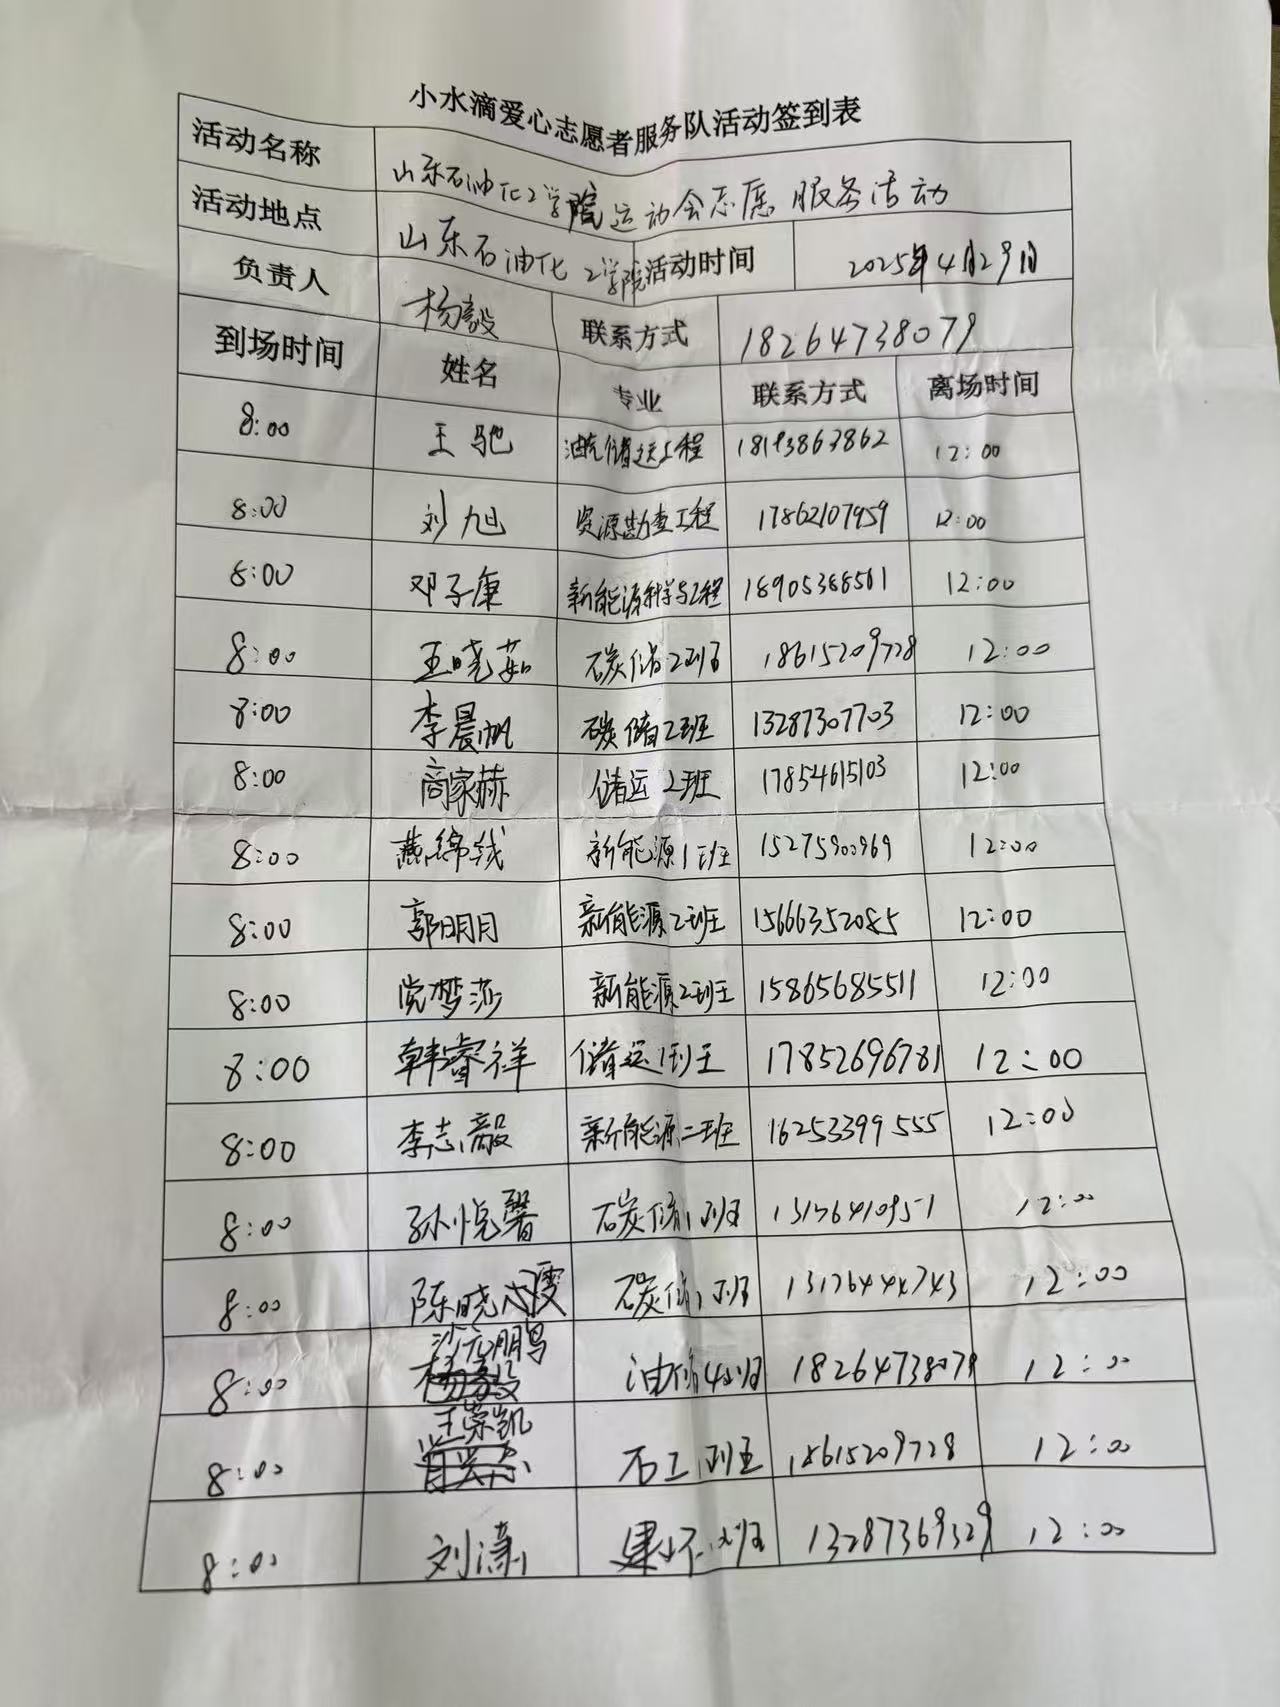 小水滴爱心志愿者服务队活动签到表
活动名称 山东石油化工学院运动会志愿服务活动
活动地点 山东石油化工学院 活动时间 2025年4月29日
负责人 杨毅 联系方式 18264738079
到场时间 姓名 专业 联系方式 离场时间
8:00 王驰 油气储运工程 12:00
8:00 刘旭 资源勘查工程 17862107959 12:00
8:00 邓子康 新能源科学与工程 18905388561 12:00
8:00 王晓茹 碳储2班 18615209728 12:00
8:00 李晨帆 碳储2班 13287307703 12:00
8:00 商家赫 储运2班 17854615103 12:00
8:00 燕绵线 新能源1班 15275900969 12:00
8:00 郭明月 新能源2班 15666352085 12:00
8:00 党梦莎 新能源2班 15865685511 12:00
8:00 韩睿祥 储运1班 17852696781 12:00
8:00 李志毅 新能源二班 16253399555 12:00
8:00 孙悦馨 碳储1班 13176410951 12:00
8:00 陈晓 碳储1班 13176444743 12:00
8:00 油储4班 18264738079 12:00
8:00 王荣凯 石工1班 18615209728 12:00
8:00 刘潇 13287369329 12:00